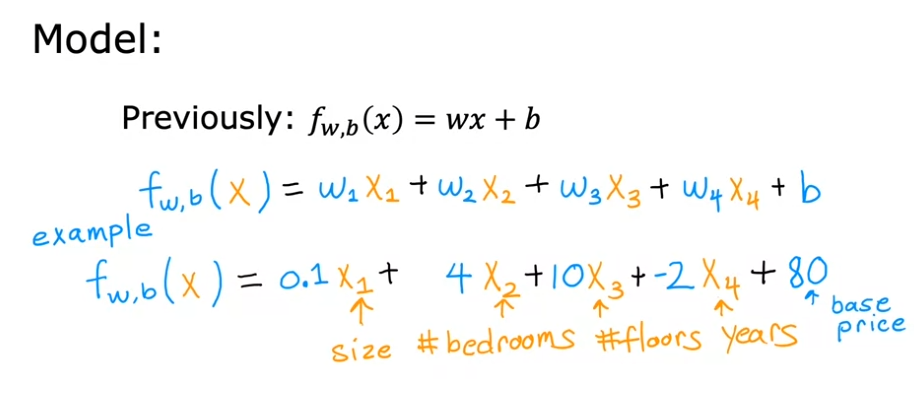 Model:
Previously: f_{w,b}(x) = wx + b
f_{w,b}(x) = w₁x₁ + w₂x₂ + w₃x₃ + w₄x₄ + b
example
f_{w,b}(x) = 0.1x₁ + 4x₂ + 10x₃ + -2x₄ + 80
size #bedrooms #floors years base price